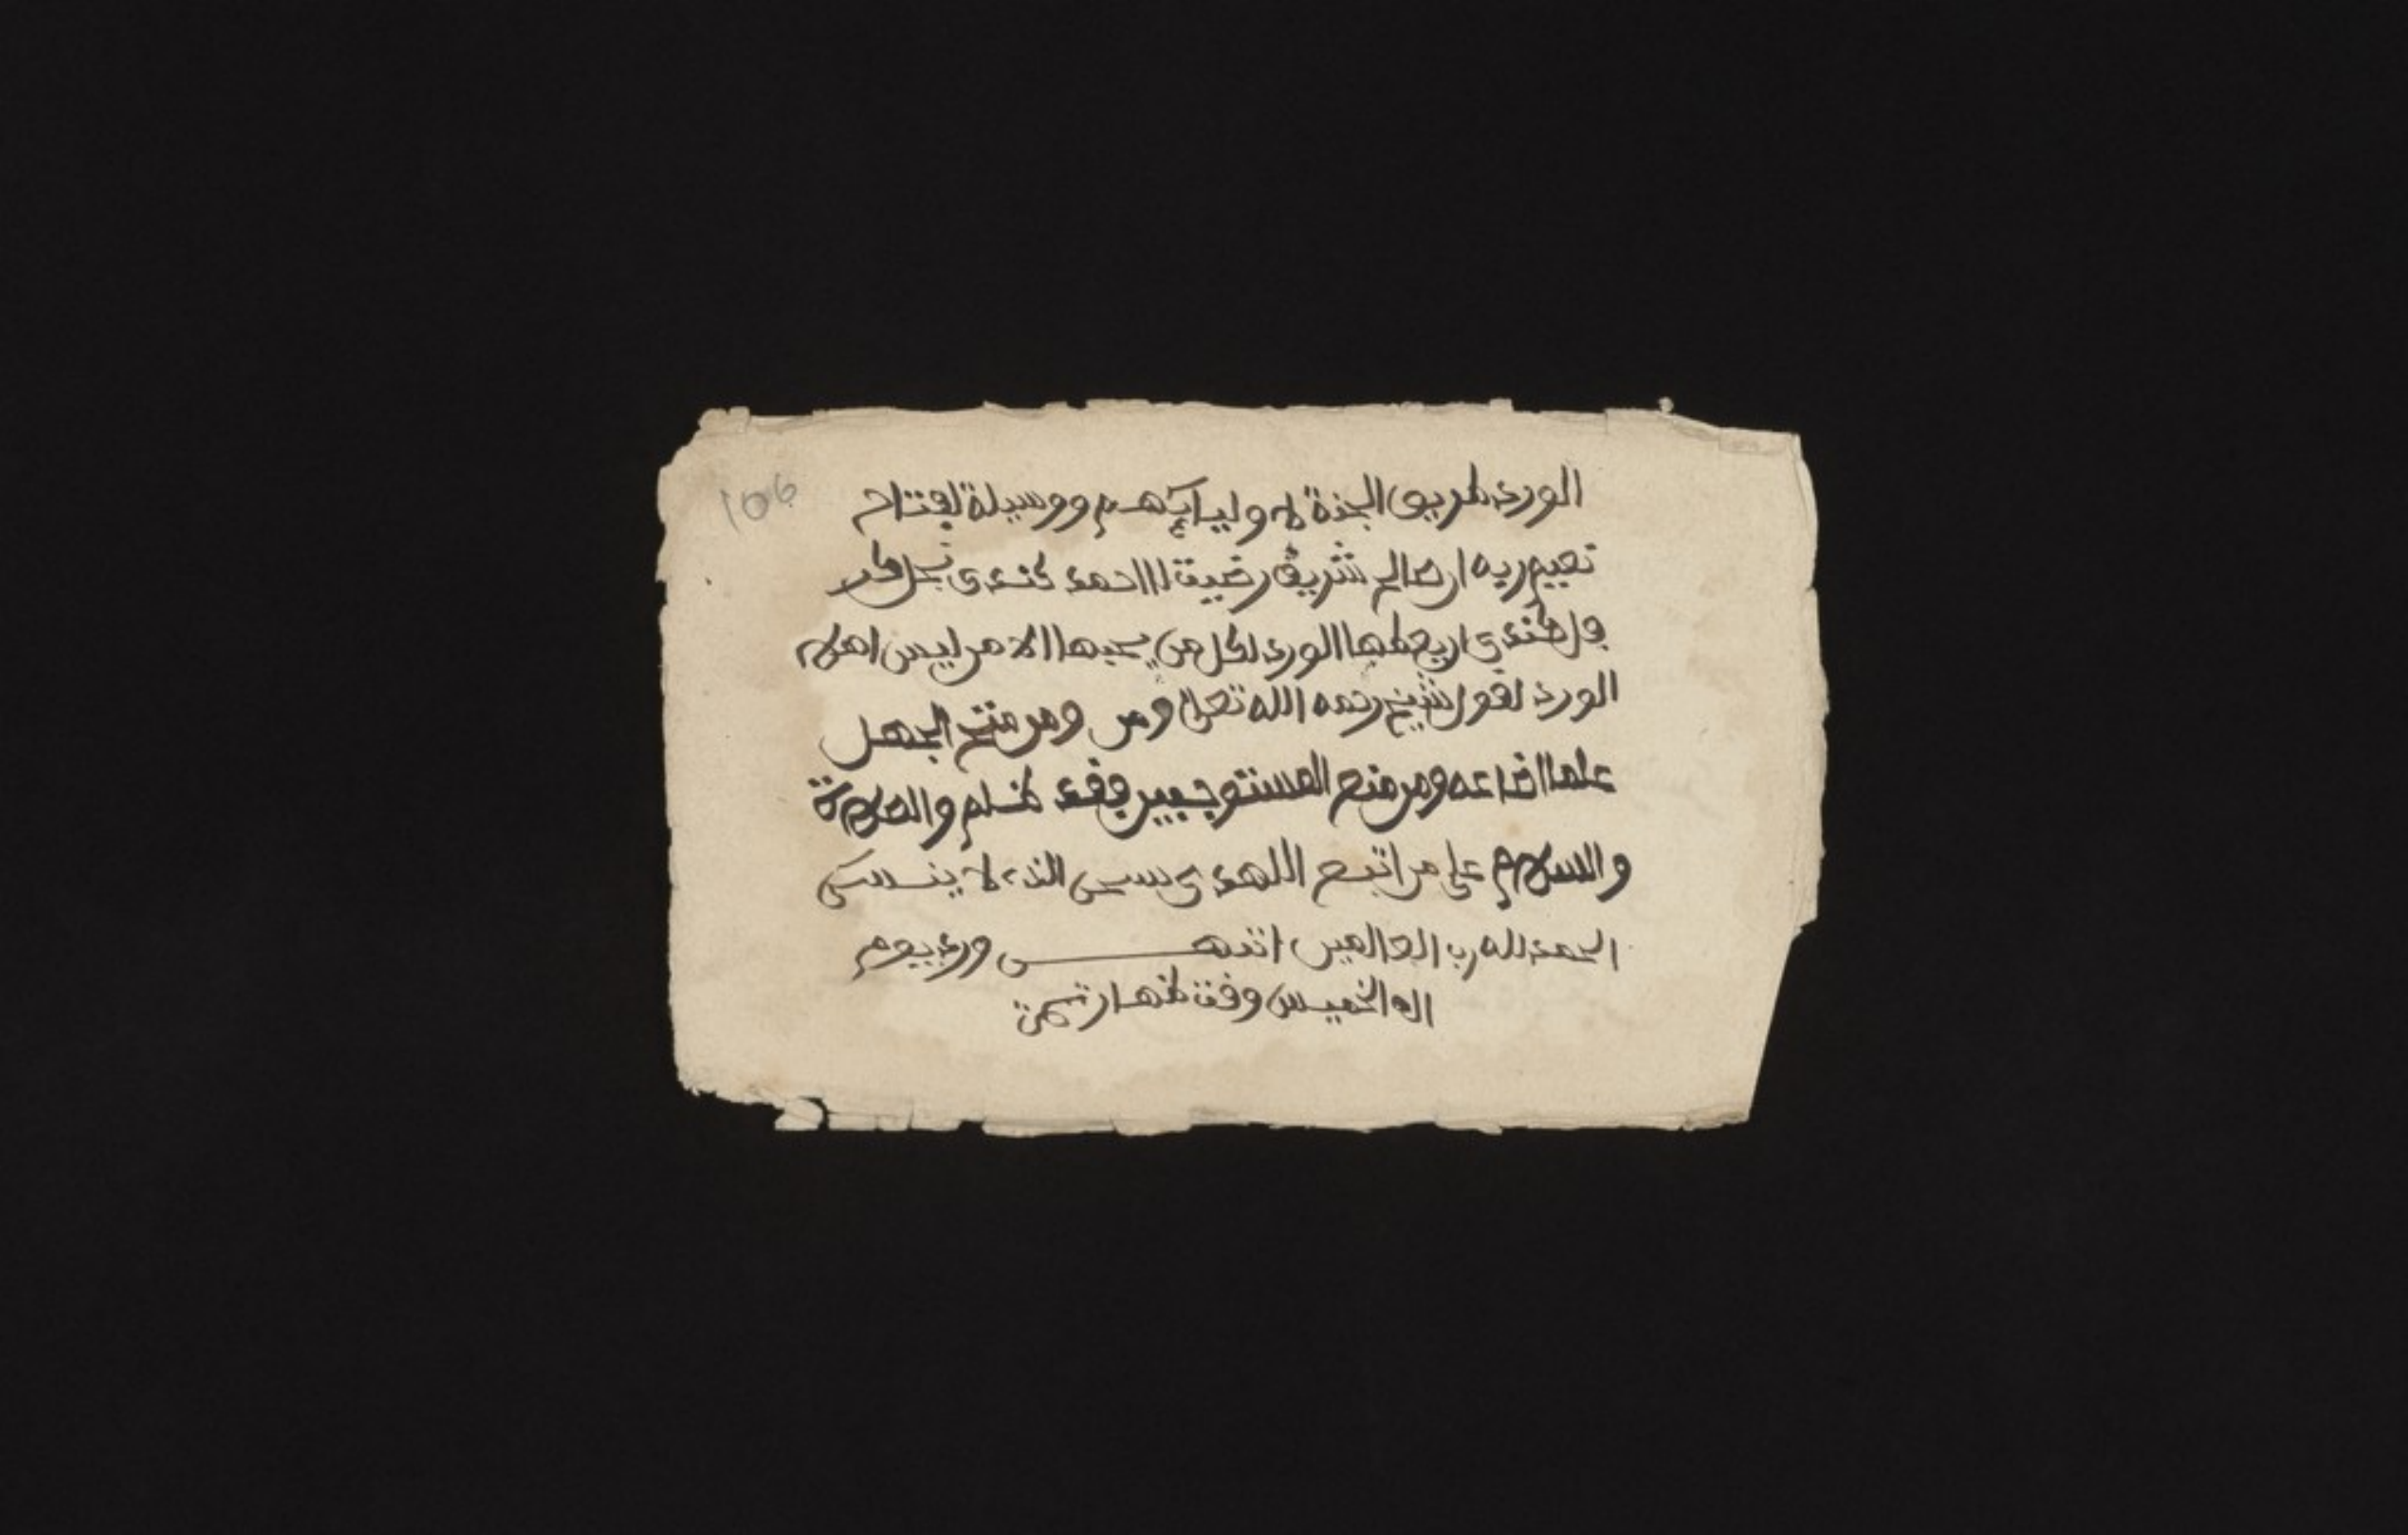 106
الورد طريق الجنة لاوليايكهم ووسيلة لافتتاح
نعيم ربه ارصالح شريف رضيت احمد كندى نجل
الورد لكل من يحبها الا من ليس اهلا
الورد لقول شيخ رحمه الله تعلى ومن ومن منح الجهل
علما اضاعه ومن منع المستوجبين فقد ظلم والصلاة
والسلام على من اتبع الهدى سبحن الذى لا ينسى
الحمد لله رب العالمين انتهى ورد بيوم
اله الخميس وقت ظهار تمت